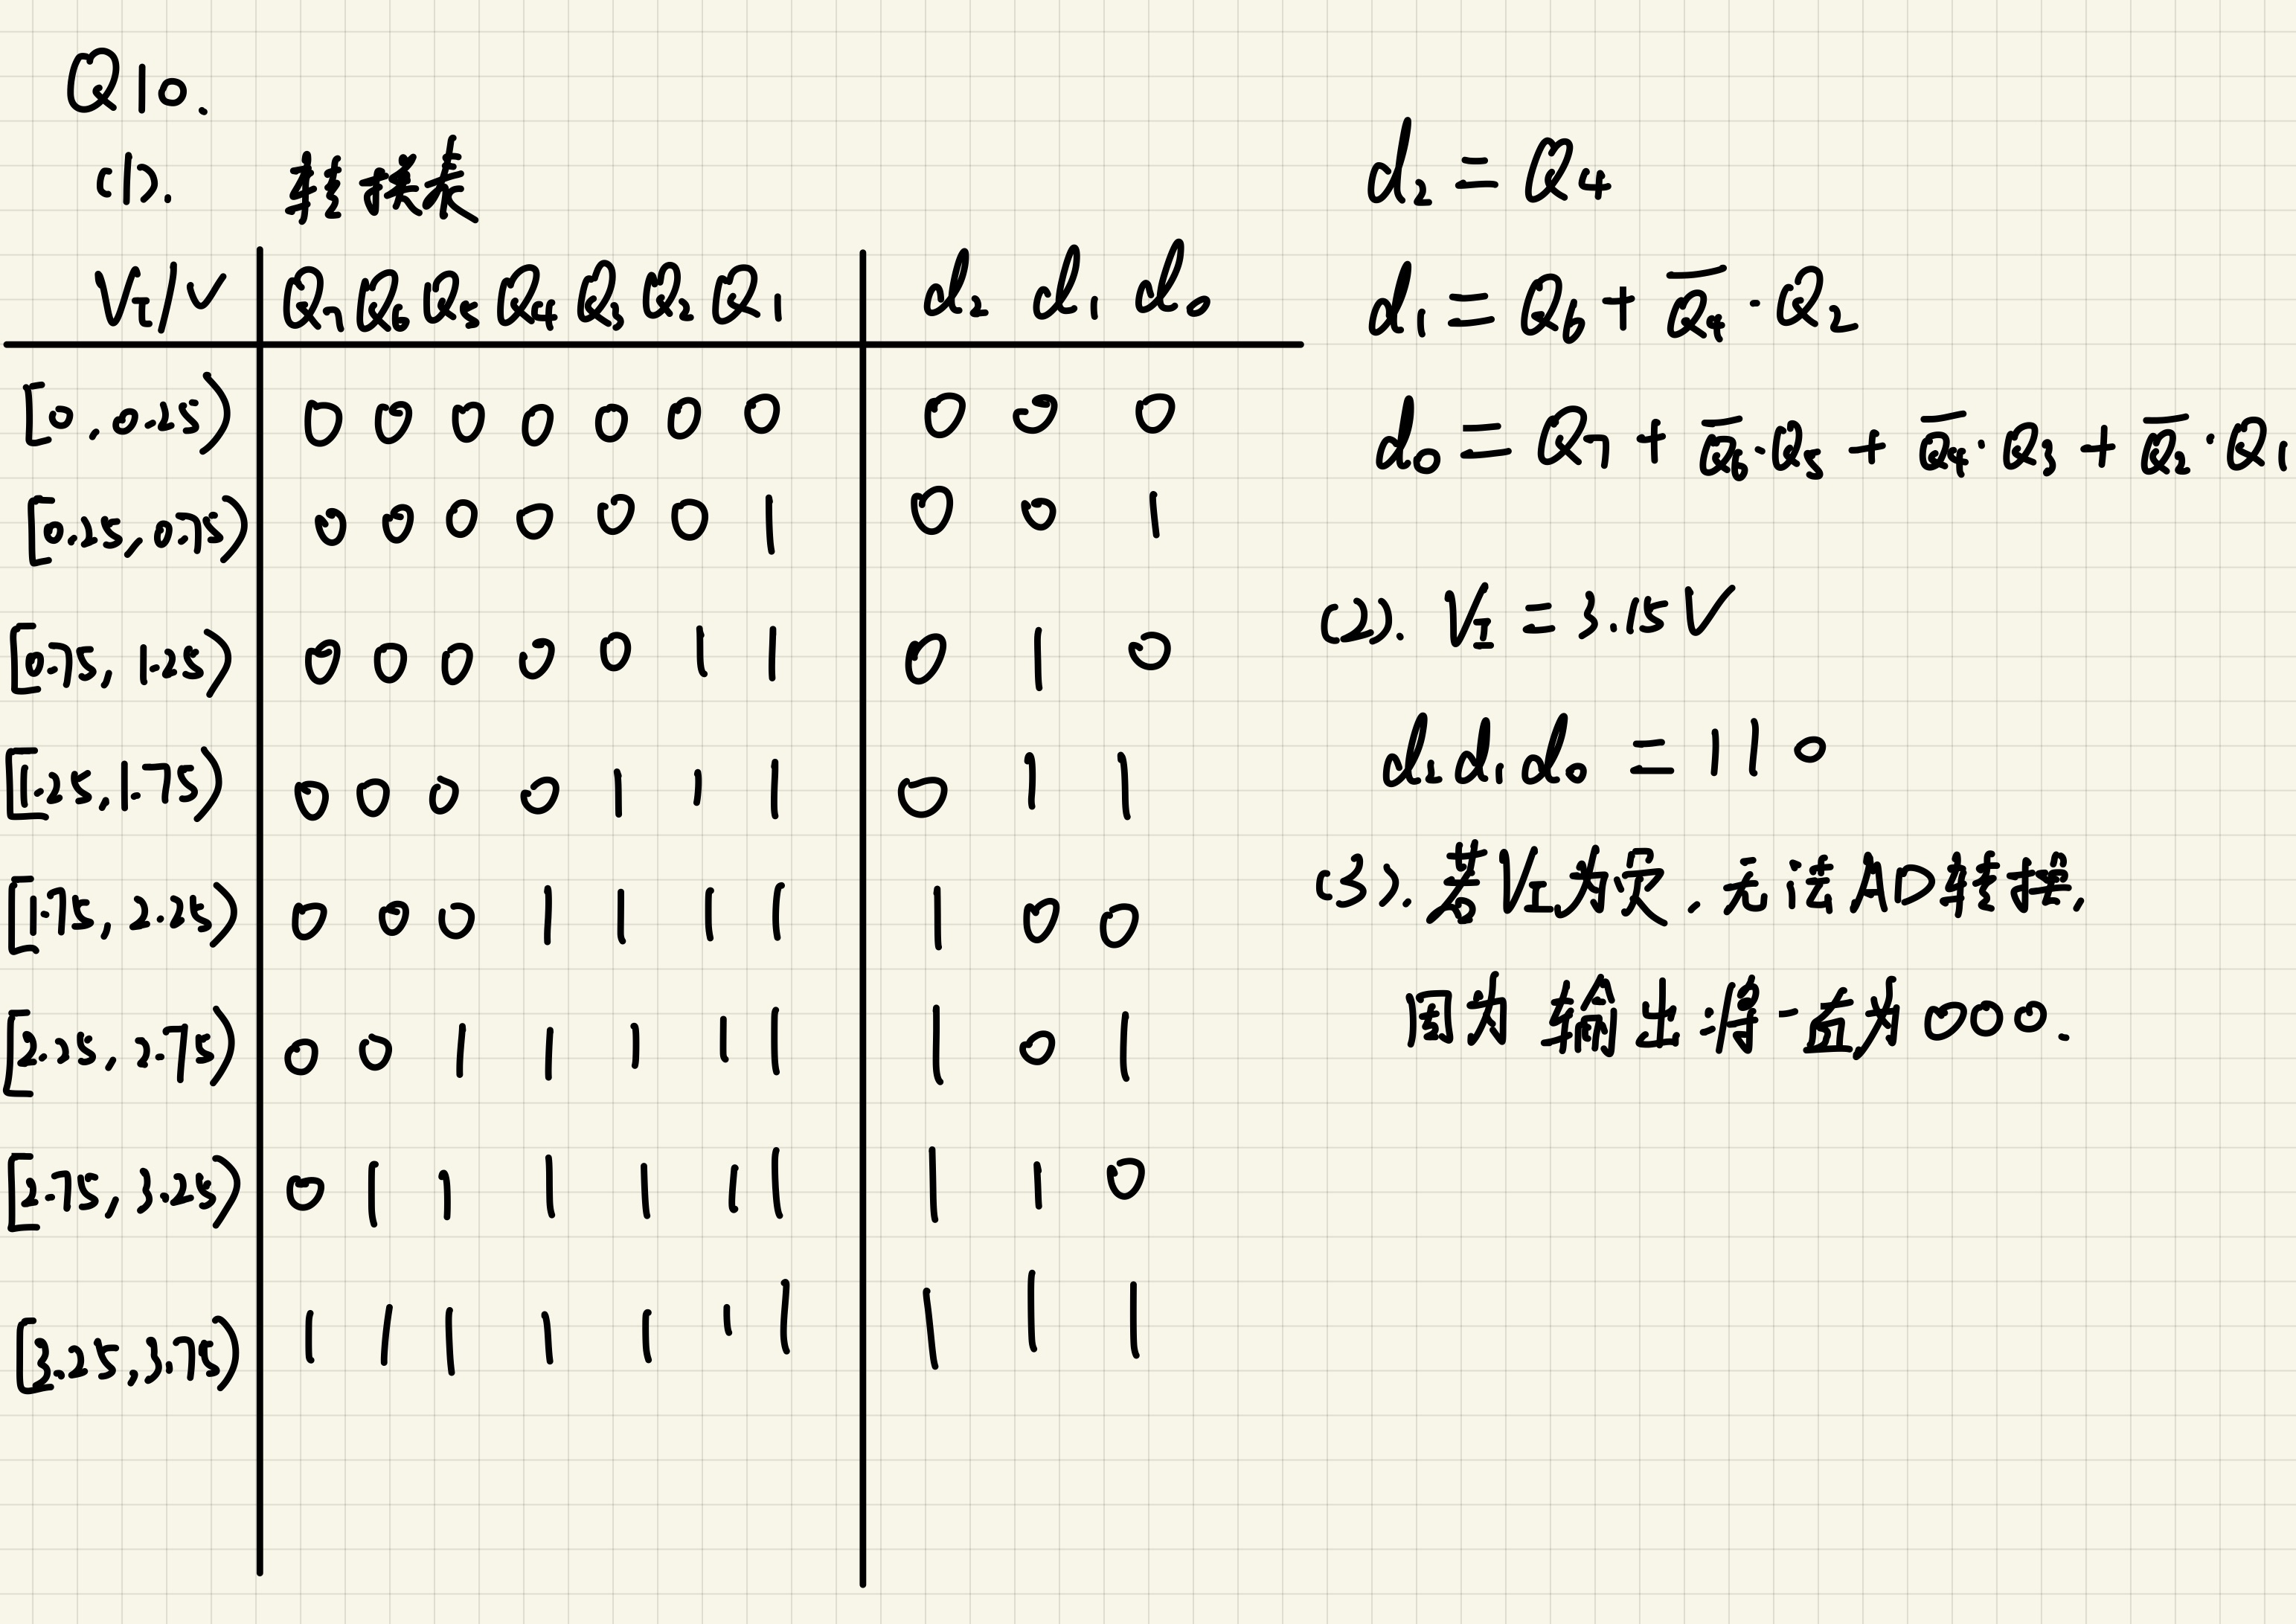 Q10.
(1). 转换表
VI/V Q7 Q6 Q5 Q4 Q3 Q2 Q1 d2 d1 d0
[0, 0.25) 0 0 0 0 0 0 0 0 0 0
[0.25, 0.75) 0 0 0 0 0 0 1 0 0 1
[0.75, 1.25) 0 0 0 0 0 1 1 0 1 0
[1.25, 1.75) 0 0 0 0 1 1 1 0 1 1
[1.75, 2.25) 0 0 0 1 1 1 1 1 0 0
[2.25, 2.75) 0 0 1 1 1 1 1 1 0 1
[2.75, 3.25) 0 1 1 1 1 1 1 1 1 0
[3.25, 3.75) 1 1 1 1 1 1 1 1 1 1
d2 = Q4
d1 = Q6 + Q̅4·Q2
d0 = Q7 + Q̅6·Q5 + Q̅4·Q3 + Q̅2·Q1
(2). VI = 3.15V
d2d1d0 = 110
(3). 若VI为负, 无法AD转换,
因为输出将一直为000.